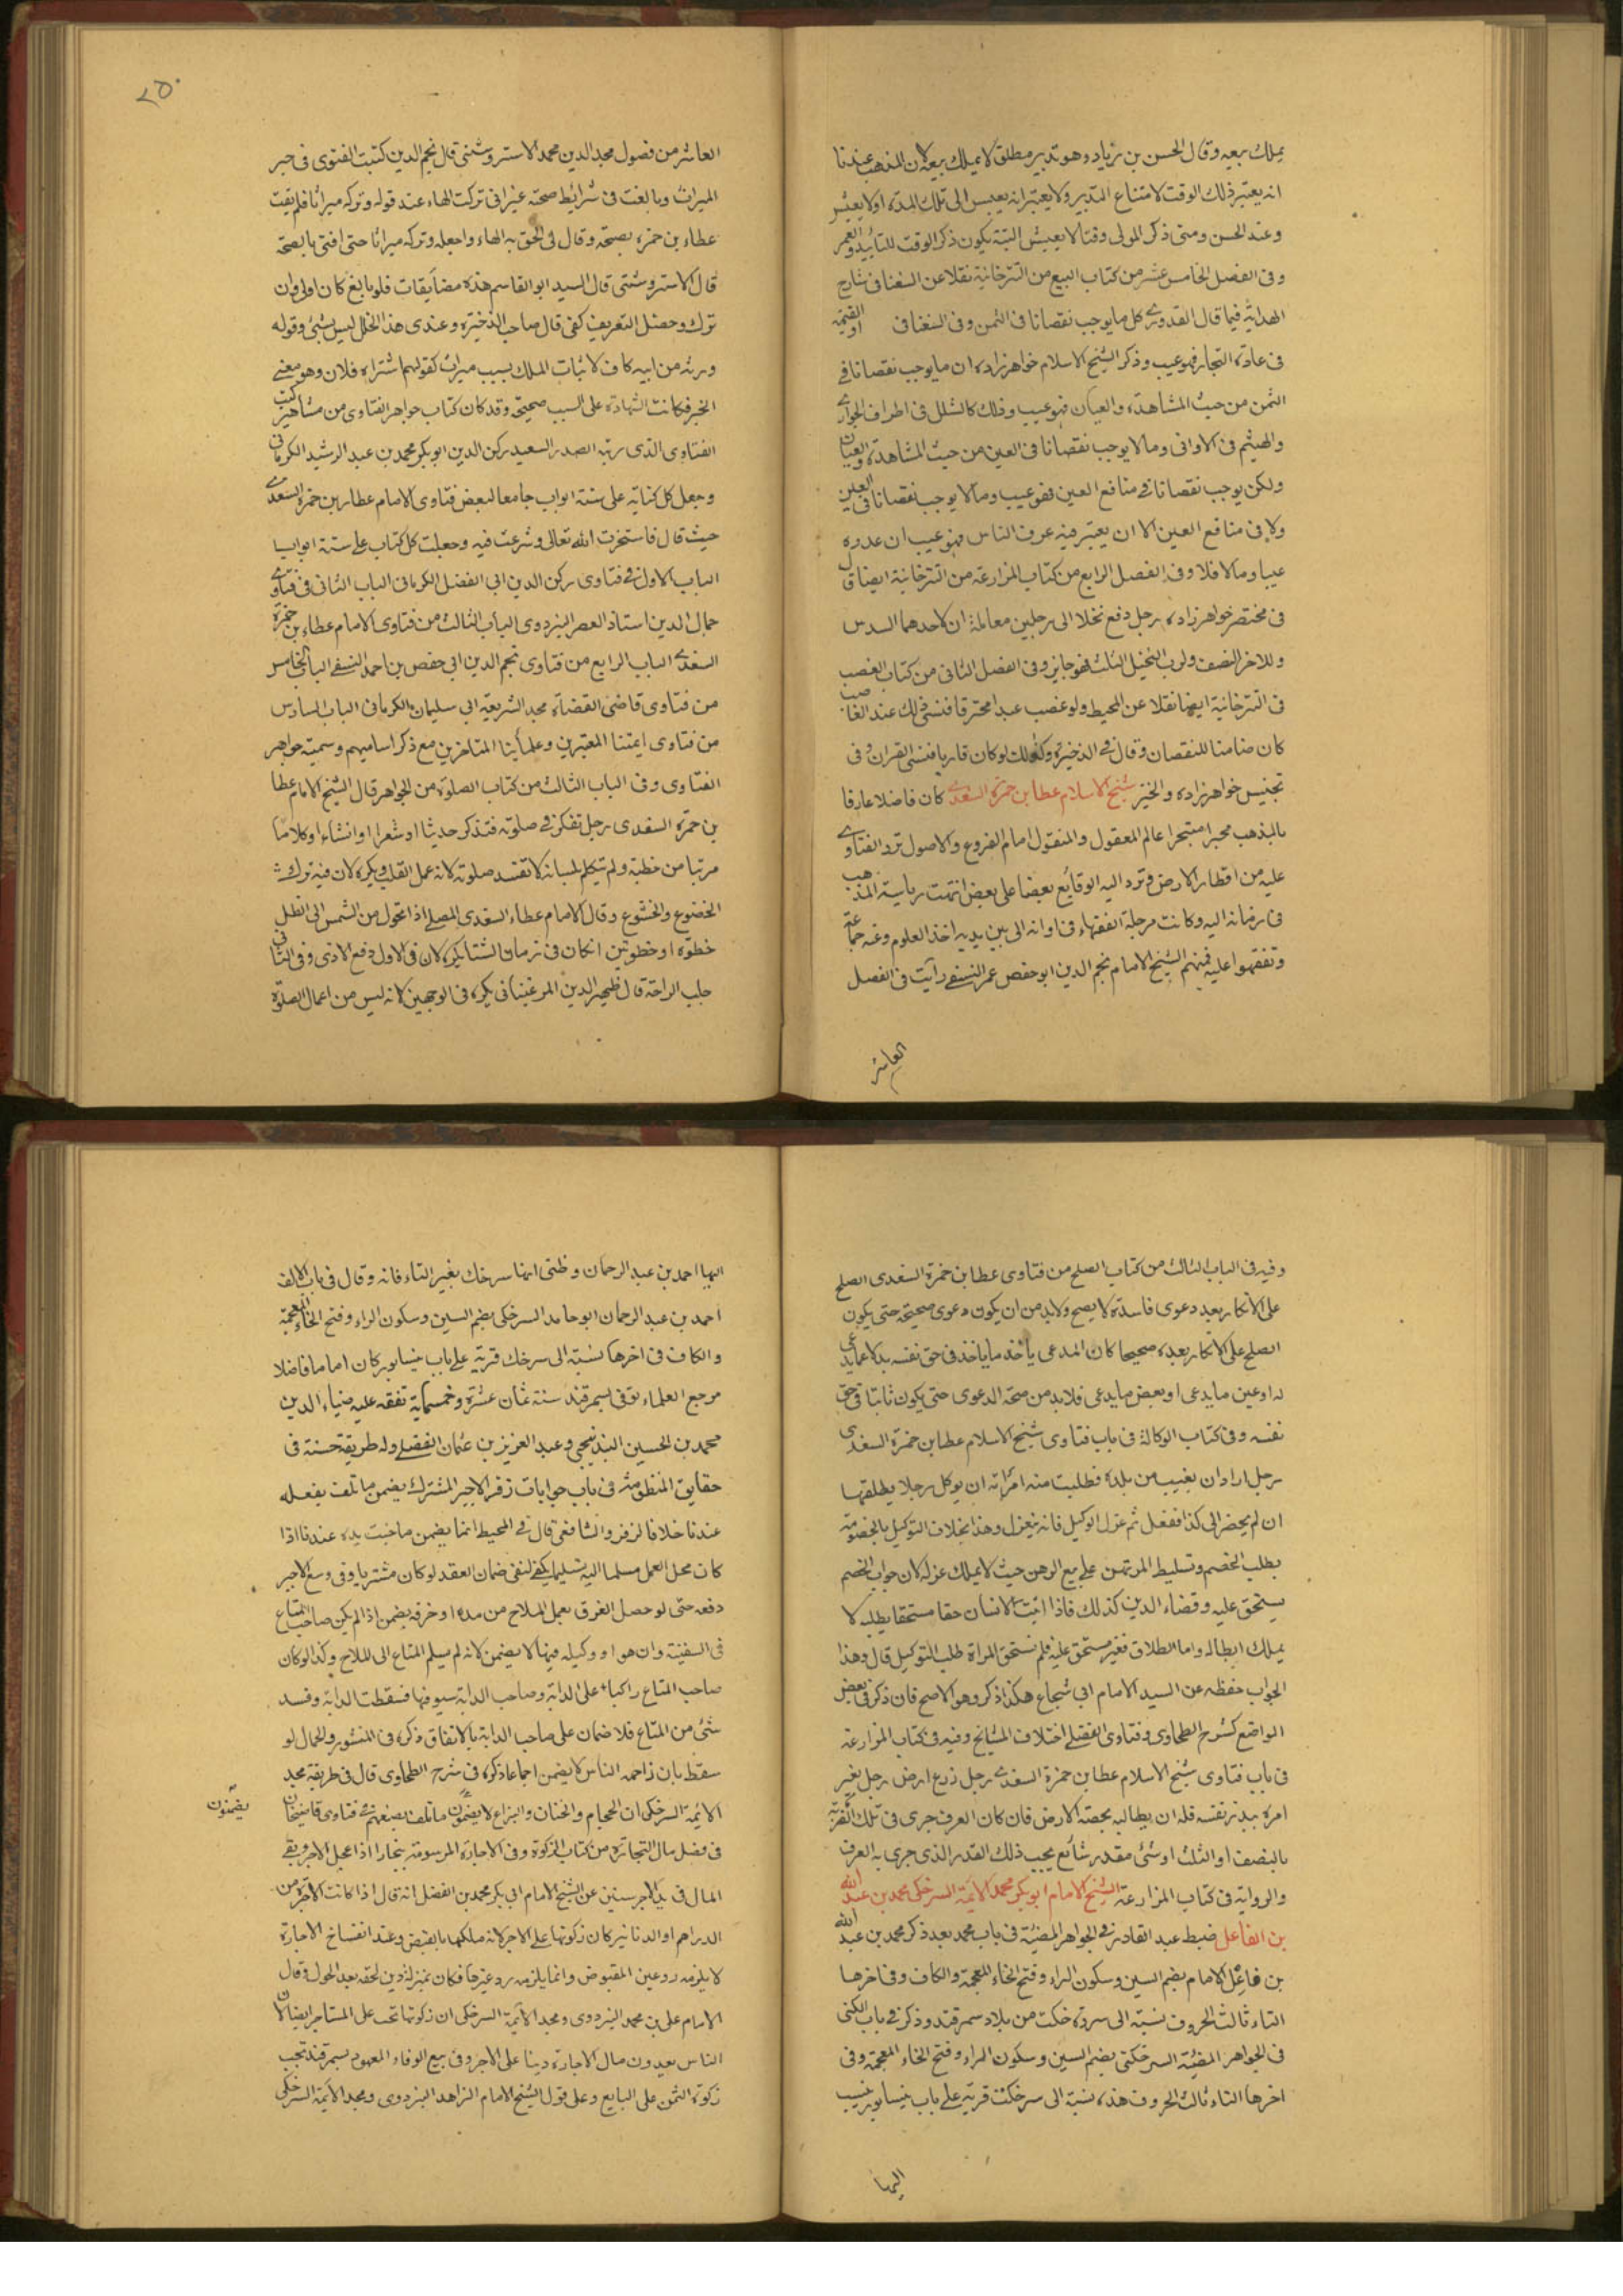 يملك بيعه وقال الحسن بن زياد وهو تدبير مطلق لا يملك بيعه لان المذهب عندنا
انه يعتبر ذلك الوقت لامتناع التدبير ولا يعتبر انه يعيش الى تلك المدة اولا يعيش
وعند الحسن ومتى ذكر المولى وقتا لا يعيش البتة يكون ذكر الوقت للتابيد والعمر
وفى الفصل الخامس عشر من كتاب البيع من التترخانية نقلا عن السغناقى شارح
الهداية فيما قال القدورى كل ما يوجب نقصانا فى الثمن وفى السغناقى او القيمة
فى عادة التجار فهو عيب وذكر الشيخ الاسلام خواهرزاده ان ما يوجب نقصانا فى
الثمن من حيث المشاهدة والعيان فهو عيب وذلك كالشلل فى اطراف الجوارى
والهشم فى الاوانى وما لا يوجب نقصانا فى العين من حيث المشاهدة والعيان
ولكن يوجب نقصانا فى منافع العين فهو عيب وما لا يوجب نقصانا فى العين
ولا فى منافع العين الا ان يعتبر فيه عرف الناس فهو عيب ان عدوه
عيبا وما لا فلا وفى الفصل الرابع من كتاب المزارعة من التترخانية ايضا قال
فى مختصر خواهرزاده رجل دفع نخلا الى رجلين معاملة ان لاحدهما السدس
وللاخر النصف ولرب النخيل الثلث فهو جايز وفى الفصل الثانى من كتاب الغصب
فى التترخانية ايضا نقلا عن المحيط ولو غصب عبدا محترفا فنسى ذلك عند الغاصب
كان ضامنا للنقصان وقال فى الذخيرة وكذلك لو كان قاريا فنسى القران وفى
تجنيس خواهرزاده والخير شيخ الاسلام عطا بن حمزة السغدى كان فاضلا عارفا
بالمذهب محبرا متبحرا عالم المعقول والمنقول امام الفروع والاصول ترد الفتاوى
عليه من اقطار الارض وترد اليه الوقايع بعضا على بعض انتهت رياسة المذهب
فى زمانه اليه وكانت مرجلة الفقهاء فى اوانه الى بين يديه اخذ العلوم وعنه جماعة
وتفقهوا عليه فمنهم الشيخ الامام نجم الدين ابو حفص عمر النسفى رأيت فى الفصل
العاشر
٢٥٠
العاشر من فصول مجد الدين محمد الاستروشنى قال نجم الدين كتبت الفتوى فى جر
الميراث وبالغت فى شرائط صحته غير انى تركت الهاء عند قوله وتركه ميراثا فلم يفت
عطاء بن حمزة بصحته وقال لى الحق به الهاء واجعله وتركه ميراثا حتى افتى بالصحة
قال الاستروشنى قال السيد ابو القاسم هذه مضايقات فلو بالغ كان اولى وان
ترك وحصل التعريف كفى قال صاحب الذخيرة وعندى هذا الخلل ليس بشئ وقوله
ورثه من ابيه كاف لاثبات الملك بسبب ميراث كقولهم اشتراه فلان وهو معنى
الخبر فكانت الشهادة على السبب صحيحة وقد كان كتاب جواهر الفتاوى من مشاهير كتب
الفتاوى الذى رتبه الصدر السعيد ركن الدين ابو بكر محمد بن عبد الرشيد الكرمانى
وجعل كل كتابه على ستة ابواب جامعا لبعض فتاوى الامام عطا بن حمزة السغدى
حيث قال فاستخرت الله تعالى وشرعت فيه وجعلت كل كتاب على ستة ابواب
الباب الاول فى فتاوى ركن الدين ابى الفضل الكرمانى الباب الثانى فى فتاوى
جمال الدين استاذ العصر اليزدوى الباب الثالث من فتاوى الامام عطاء بن حمزة
السغدى الباب الرابع من فتاوى نجم الدين ابى حفص بن احمد النسفى الباب الخامس
من فتاوى قاضى القضاة مجد الشريعة ابى سليمان الكرمانى الباب السادس
من فتاوى ايمتنا المعتبرين وعلمائنا المتاخرين مع ذكر اساميهم وسميته جواهر
الفتاوى وفى الباب الثالث من كتاب الصلوة من الجواهر قال الشيخ الامام عطا
بن حمزة السغدى رجل تفكر فى صلوته فتذكر حديثا او شعرا او انشاء او كلاما
مرتبا من خطبة ولم يتكلم بلسانه لا تفسد صلوته لانه عمل القلب ويكره لان فيه ترك
الخضوع والخشوع وقال الامام عطاء السغدى المصلى اذا تحول من الشمس الى الظل
خطوة او خطوتين ان كان فى زمان الشتا يكره لان فى الاول دفع الاذى وفى الثانى
جلب الراحة قال ظهير الدين المرغينانى يكره فى الوجهين لانه ليس من اعمال الصلوة
وفيه فى الباب الثالث من كتاب الصلح من فتاوى عطا بن حمزة السغدى الصلح
على الانكار بعد دعوى فاسدة لا يصح ولا بد من ان يكون دعوى صحيحة حتى يكون
الصلح على الانكار بعده صحيحا كان المدعى يأخذ ما يأخذ فى حق نفسه بدلا عما يدعى
له او عين ما يدعى او بعض ما يدعى فلا بد من صحة الدعوى حتى يكون ثابتا فى حق
نفسه وفى كتاب الوكالة فى باب فتاوى شيخ الاسلام عطا بن حمزة السغدى
رجل اراد ان يغيب من بلده فطلبت منه امرأته ان يوكل رجلا يطلقها
ان لم يحضر الى كذا ففعل ثم عزل الوكيل فانه ينعزل وهذا بخلاف التوكيل بالخصومة
بطلب الخصم وتسليط المرتهن على بيع الرهن حيث لا يملك عزله لان جواب الخصم
يستحق عليه وقضاء الدين كذلك فاذا اثبت الانسان حقا مستحقا بطلبه لا
يملك ابطاله واما الطلاق فغير مستحق عليه فلم تستحق المراة طلب التوكيل قال وهذا
الجواب حفظه عن السيد الامام ابى شجاع هكذا ذكر وهو الاصح فان ذكر فى بعض
المواضع كشرح الطحاوى وفتاوى الفضلى اختلاف المشايخ وفيه فى كتاب المزارعة
فى باب فتاوى شيخ الاسلام عطا بن حمزة السغدى رجل زرع ارض رجل بغير
امره ببذر نفسه فله ان يطالبه بحصة الارض فان كان العرف جرى فى تلك القرية
بالنصف او الثلث او شئ مقدر شائع يجب ذلك القدر الذى جرى به العرف
والرواية فى كتاب المزارعة الشيخ الامام ابو بكر محمد الائمة السرخكى محمد بن عبد الله
بن الفاعل ضبط عبد القادر فى الجواهر المضيئة فى باب محمد بعد ذكر محمد بن عبد الله
بن فاعل الامام بضم السين وسكون الراء وفتح الخاء المعجمة والكاف وفى اخرها
التاء ثالث الحروف نسبة الى سرخكت من بلاد سمرقند وذكر فى باب الكنى
فى الجواهر المضيئة السرخكتى بضم السين وسكون الراء وفتح الخاء المعجمة وفى
اخرها التاء ثالث الحروف هذه نسبة الى سرخكت قرية على باب نيسابور ينسب
اليها
اليها احمد بن عبد الرحمان وظنى انها سرخك بغير التاء فانه وقال فى باب الالف
احمد بن عبد الرحمان ابو حامد السرخكى بضم السين وسكون الراء وفتح الخاء المعجمة
والكاف فى اخرها نسبة الى سرخك قرية على باب نيسابور كان اماما فاضلا
مرجع العلماء توفى بسمرقند سنة ثمان عشرة وخمسماية تفقه عليه ضياء الدين
محمد بن الحسين البندنيجى وعبد العزيز بن عثمان الفضلى وله طريقة حسنة فى
حقايق المنظومة فى باب جوابات زفر الاجير المشترك يضمن ما تلف بفعله
عندنا خلافا لزفر والشافعى قال فى المحيط انما يضمن ما جنت يده عندنا اذا
كان محل العمل مسلما اليه تسليما يكفى لنفى ضمان العقد لو كان مشتريا وفى وسع الاجير
دفعه حتى لو حصل الغرق بعمل الملاح من مده او خرقه يضمن اذا لم يكن صاحب المتاع
فى السفينة وان هو او وكيله فيها لا يضمن لانه لم يسلم المتاع الى الملاح وكذا لو كان
صاحب المتاع راكبا على الدابة وصاحب الدابة يسوقها فسقطت الدابة وفسد
شئ من المتاع فلا ضمان على صاحب الدابة بالاتفاق ذكره فى المنشور والحمال لو
سقط بان زاحمه الناس لا يضمن اجماعا ذكره فى شرح الطحاوى قال فى طريقة مجد
الائمة السرخكى ان الحجام والختان والبزاع لا يضمنون ما تلف بصنعهم فى فتاوى قاضيخان
يضمنون
فى فصل مال التجارة من كتاب الزكوة وفى الاجارة المرسومة ببخارا اذا عجل الاجر وبقى
المال فى يد الاجر سنين عن الشيخ الامام ابى بكر محمد بن الفضل انه قال اذا كانت الاجرة من
الدراهم او الدنانير كان زكوتها على الاجر لانه ملكها بالقبض وعند انفساخ الاجارة
لا يلزمه رد عين المقبوض وانما يلزمه رد غيرها فكان بمنزلة دين لحقه بعد الحول وقال
الامام على بن محمد البزدوى ومجد الائمة السرخكى ان زكوتها تجب على المستاجر ايضا لان
الناس يعدون مال الاجارة دينا على الاجر وفى بيع الوفاء المعهود بسمرقند تجب
زكوة الثمن على البايع وعلى قول الشيخ الامام الزاهد البزدوى ومجد الائمة السرخكى